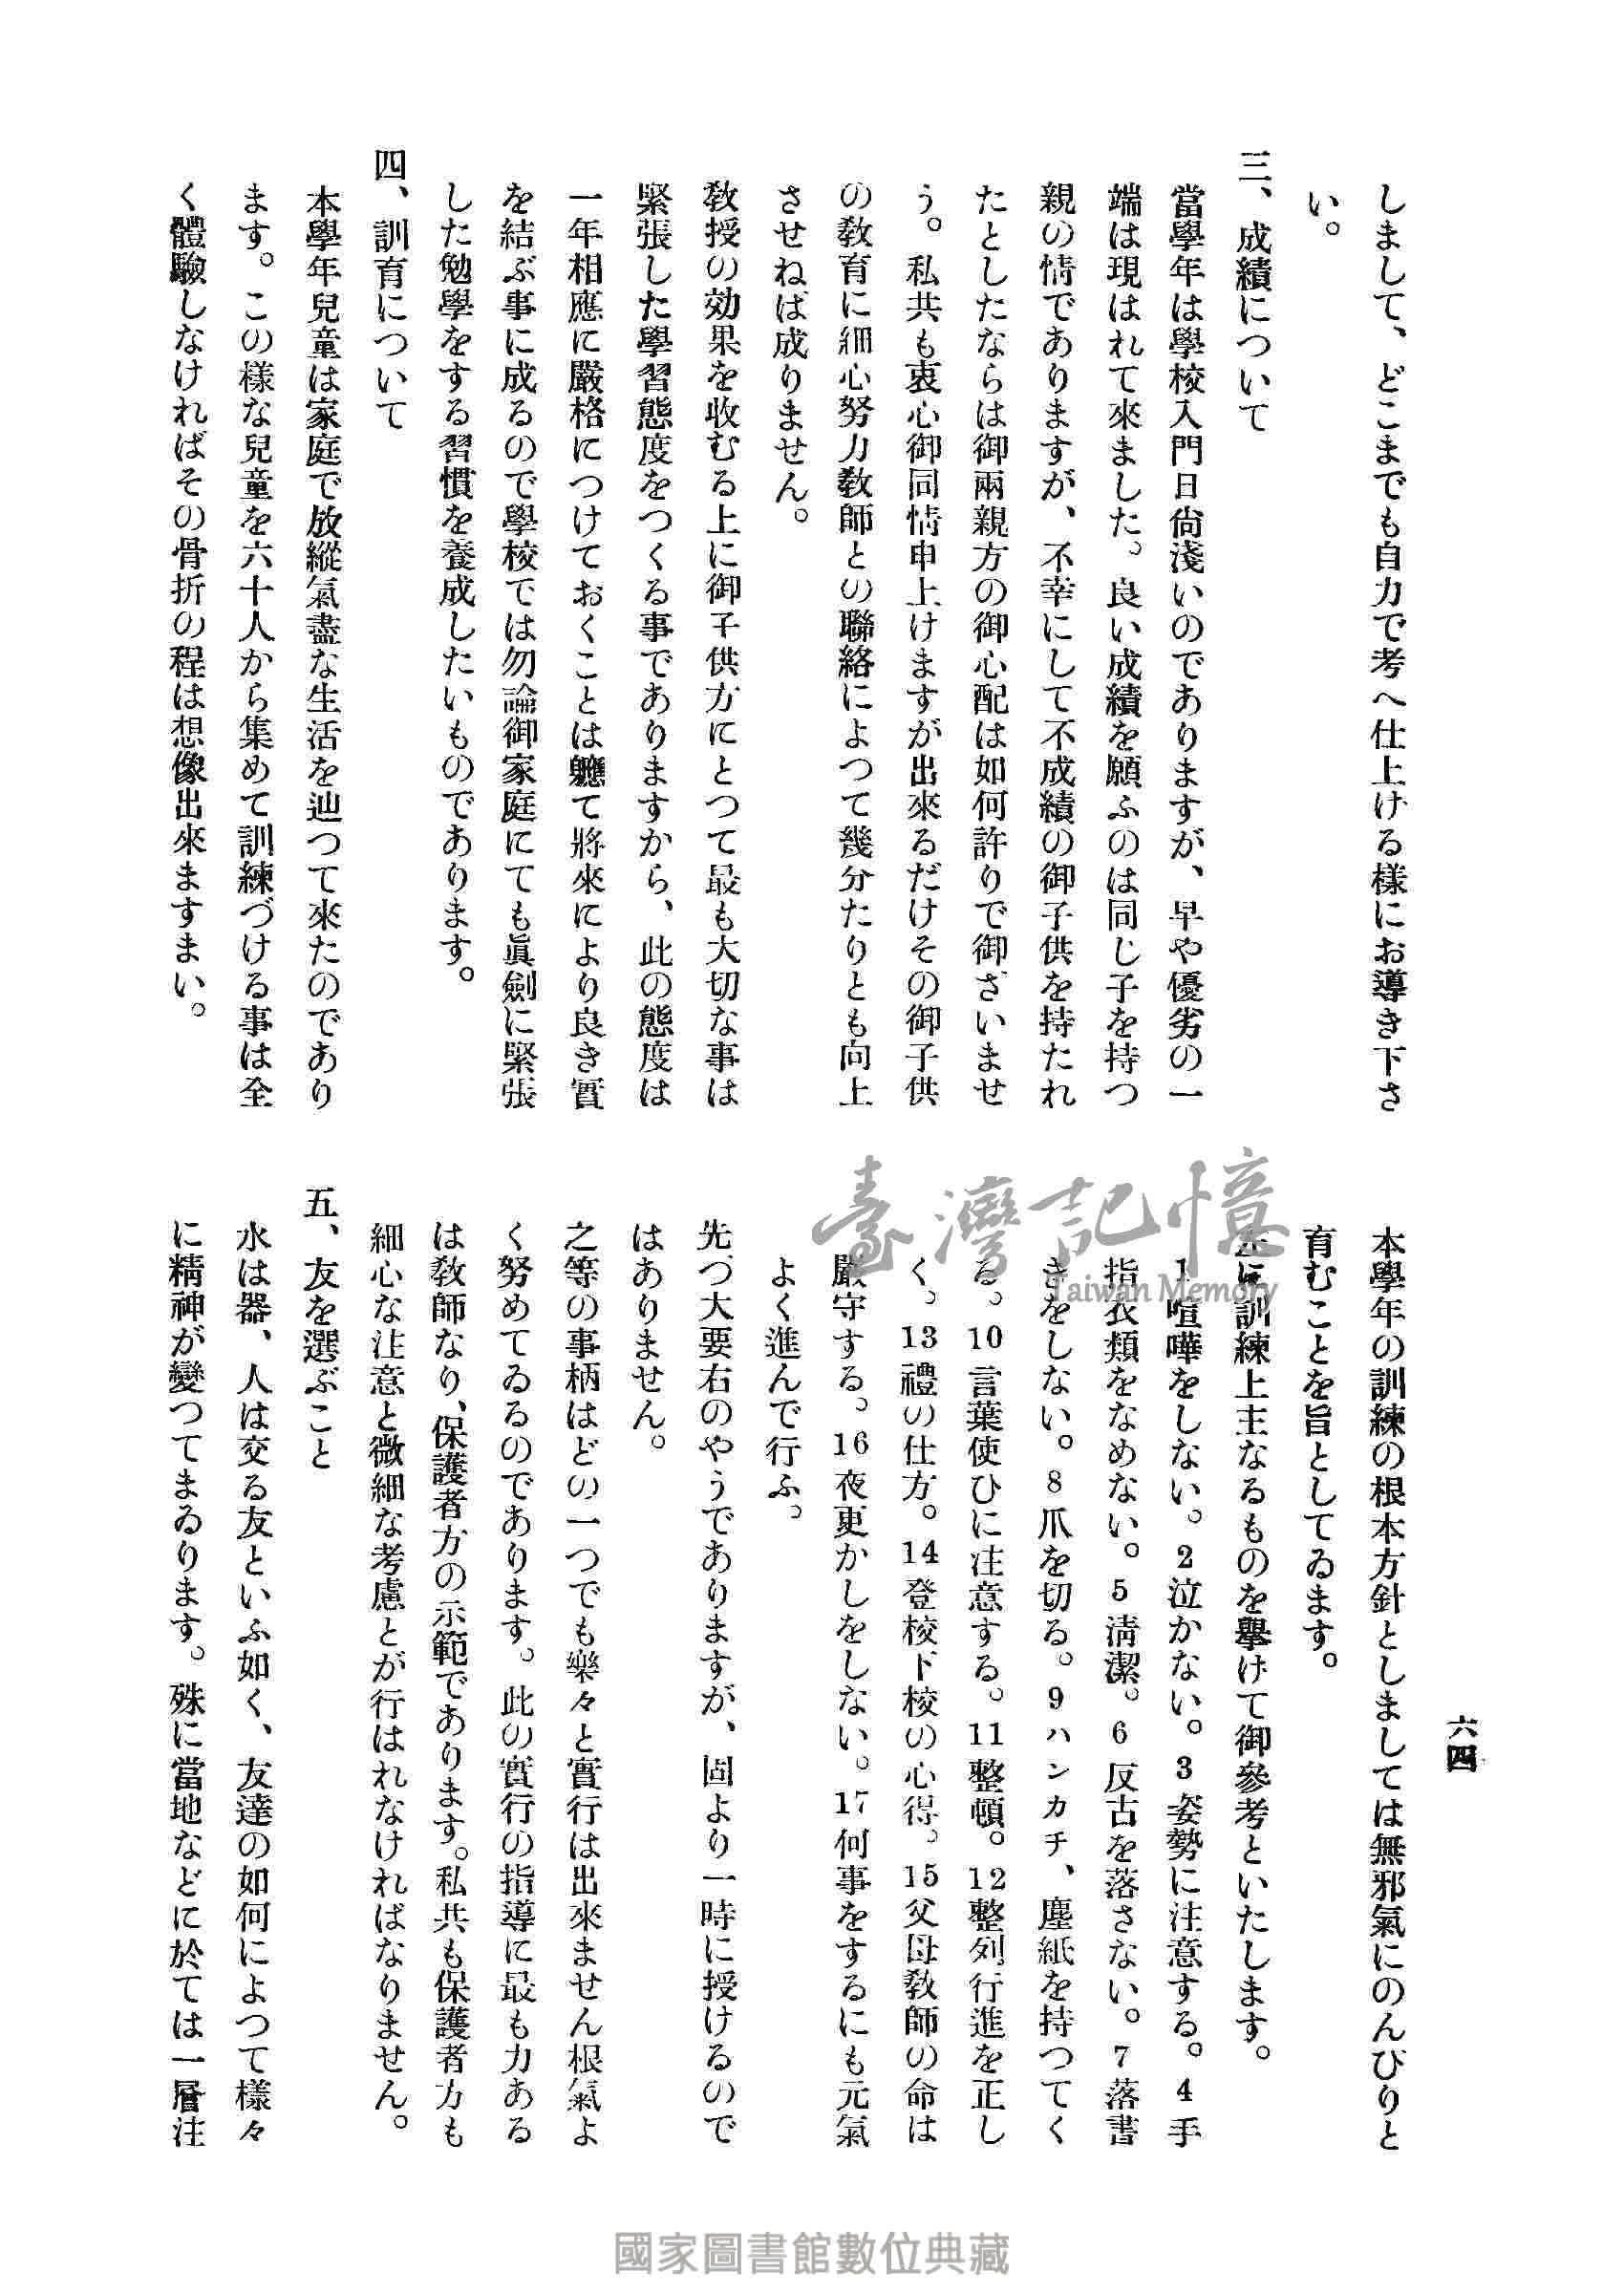 六四
しまして、どこまでも自力で考へ仕上ける樣にお導き下さ
い。
三、成績について
當學年は學校入門日尙淺いのでありますが、早や優劣の一
端は現はれて來ました。良い成績を願ふのは同じ子を持つ
親の情でありますが、不幸にして不成績の御子供を持たれ
たとしたならは御兩親方の御心配は如何許りで御ざいませ
う。私共も衷心御同情申上けますが出來るだけその御子供
の敎育に細心努力敎師との聯絡によつて幾分たりとも向上
させねば成りません。
敎授の効果を收むる上に御子供方にとつて最も大切な事は
緊張した學習態度をつくる事でありますから、此の態度は
一年相應に嚴格につけておくことは軈て將來により良き實
を結ぶ事に成るので學校では勿論御家庭にても眞劍に緊張
した勉學をする習慣を養成したいものであります。
四、訓育について
本學年兒童は家庭で放縱氣盡な生活を辿つて來たのであり
ます。この樣な兒童を六十人から集めて訓練づける事は全
く體驗しなければその骨折の程は想像出來ますまい。
本學年の訓練の根本方針としましては無邪氣にのんびりと
育むことを旨としてゐます。
左に訓練上主なるものを擧けて御參考といたします。
1喧嘩をしない。2泣かない。3姿勢に注意する。4手
指衣類をなめない。5淸潔。6反古を落さない。7落書
きをしない。8爪を切る。9ハンカチ、塵紙を持つてく
る。10言葉使ひに注意する。11整頓。12整列行進を正し
く。13禮の仕方。14登校下校の心得。15父母敎師の命は
嚴守する。16夜更かしをしない。17何事をするにも元氣
よく進んで行ふ。
先づ大要右のやうでありますが、固より一時に授けるので
はありません。
之等の事柄はどの一つでも樂々と實行は出來ません根氣よ
く努めてゐるのであります。此の實行の指導に最も力ある
は敎師なり、保護者方の示範であります。私共も保護者方も
細心な注意と微細な考慮とが行はれなければなりません。
五、友を選ぶこと
水は器、人は交る友といふ如く、友達の如何によつて樣々
に精神が變つてまゐります。殊に當地などに於ては一層注
臺灣記憶
Taiwan Memory
國家圖書館數位典藏